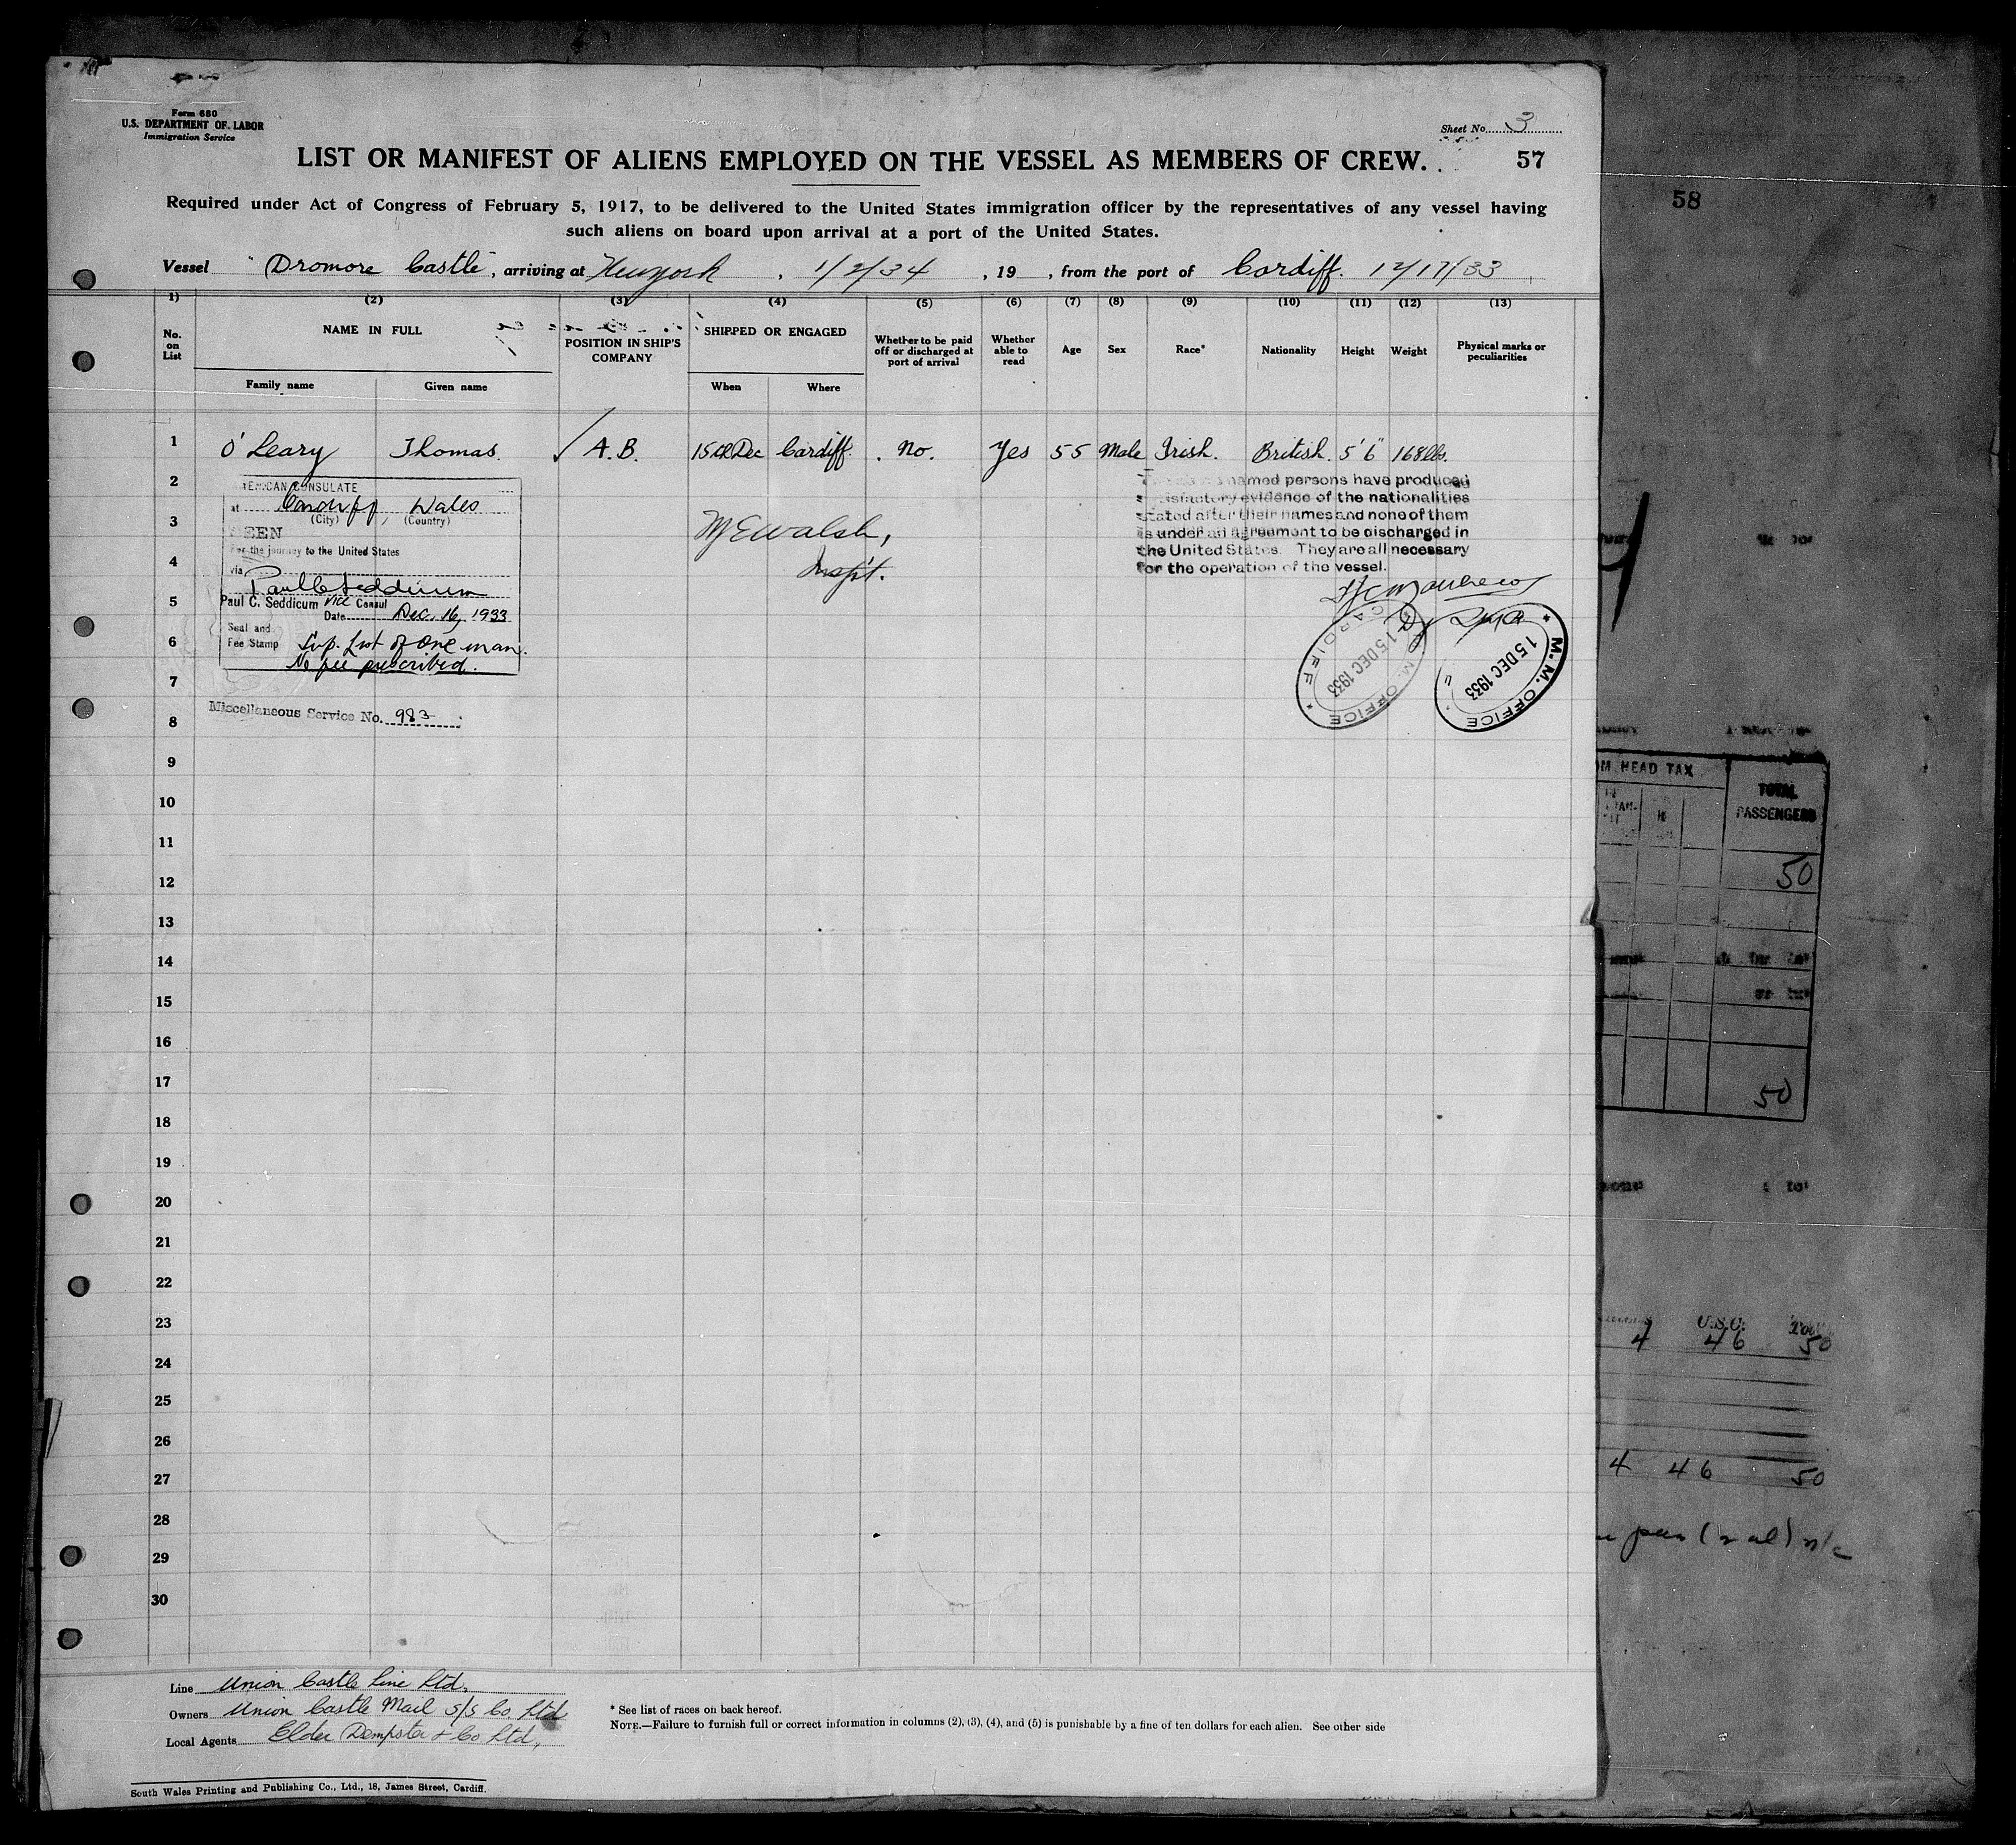 Form 680
U.S. DEPARTMENT OF LABOR
Immigration Service
Sheet No. 3
LIST OR MANIFEST OF ALIENS EMPLOYED ON THE VESSEL AS MEMBERS OF CREW.
57
Required under Act of Congress of February 5, 1917, to be delivered to the United States immigration officer by the representatives of any vessel having
such aliens on board upon arrival at a port of the United States.
Vessel "Dromore Castle", arriving at New york, 1/2/34, 19 , from the port of Cardiff. 12/17/33
(1) (2) (3) (4) (5) (6) (7) (8) (9) (10) (11) (12) (13)
No. on List
NAME IN FULL
Family name Given name
POSITION IN SHIP'S COMPANY
SHIPPED OR ENGAGED
When Where
Whether to be paid off or discharged at port of arrival
Whether able to read
Age
Sex
Race*
Nationality
Height
Weight
Physical marks or peculiarities
1 O'Leary Thomas. A.B. 15th Dec Cardiff. No. Yes 55 Male Irish. British. 5'6" 168lbs.
2
3
4
5
6
7
8
9
10
11
12
13
14
15
16
17
18
19
20
21
22
23
24
25
26
27
28
29
30
AMERICAN CONSULATE
at Cardiff, Wales
(City) (Country)
SEEN
For the journey to the United States
via
Paul C Seddicum
Paul C. Seddicum Vice Consul
Date Dec. 16, 1933
Seal and
Fee Stamp
Sup. List of one man.
No fee prescribed.
Miscellaneous Service No. 983
M E Walsh,
Insp't.
named persons have produced
satisfactory evidence of the nationalities
stated after their names and none of them
is under an agreement to be discharged in
the United States. They are all necessary
for the operation of the vessel.
M. M. OFFICE
CARDIFF
15 DEC 1933
M. M. OFFICE
15 DEC 1933
Line Union Castle Line Ltd,
Owners Union Castle Mail S/S Co. Ltd
Local Agents Elder Dempster & Co Ltd,
* See list of races on back hereof.
NOTE.—Failure to furnish full or correct information in columns (2), (3), (4), and (5) is punishable by a fine of ten dollars for each alien. See other side
South Wales Printing and Publishing Co., Ltd., 18, James Street, Cardiff.
58
HEAD TAX
TOTAL
PASSENGERS
50
50
U.S.C.
4 46 50
4 46 50